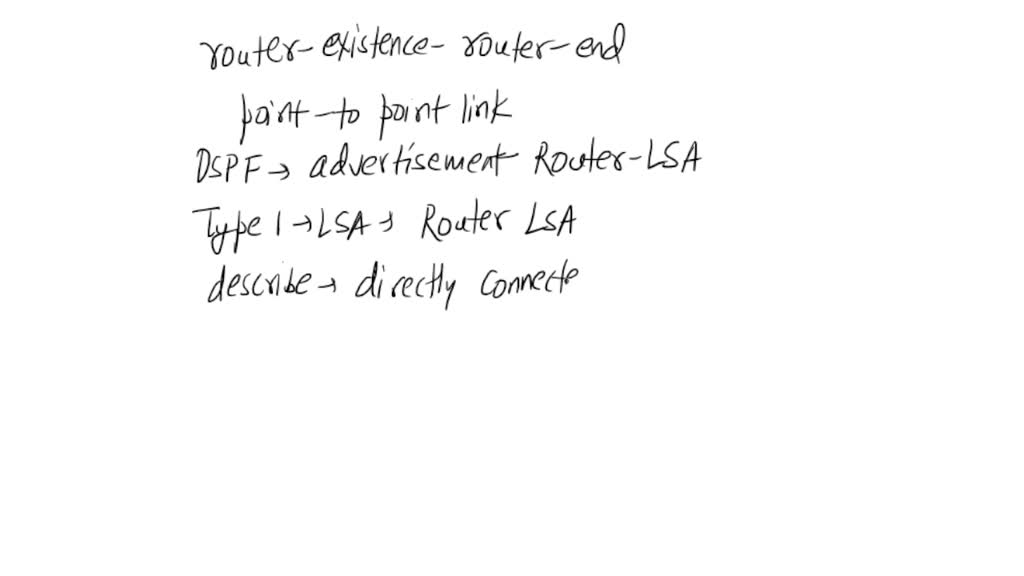 router-existence-router-end
point-to point link
DSPF→ advertisement Router-LSA
Type 1→LSA→ Router LSA
describe→ directly connecte